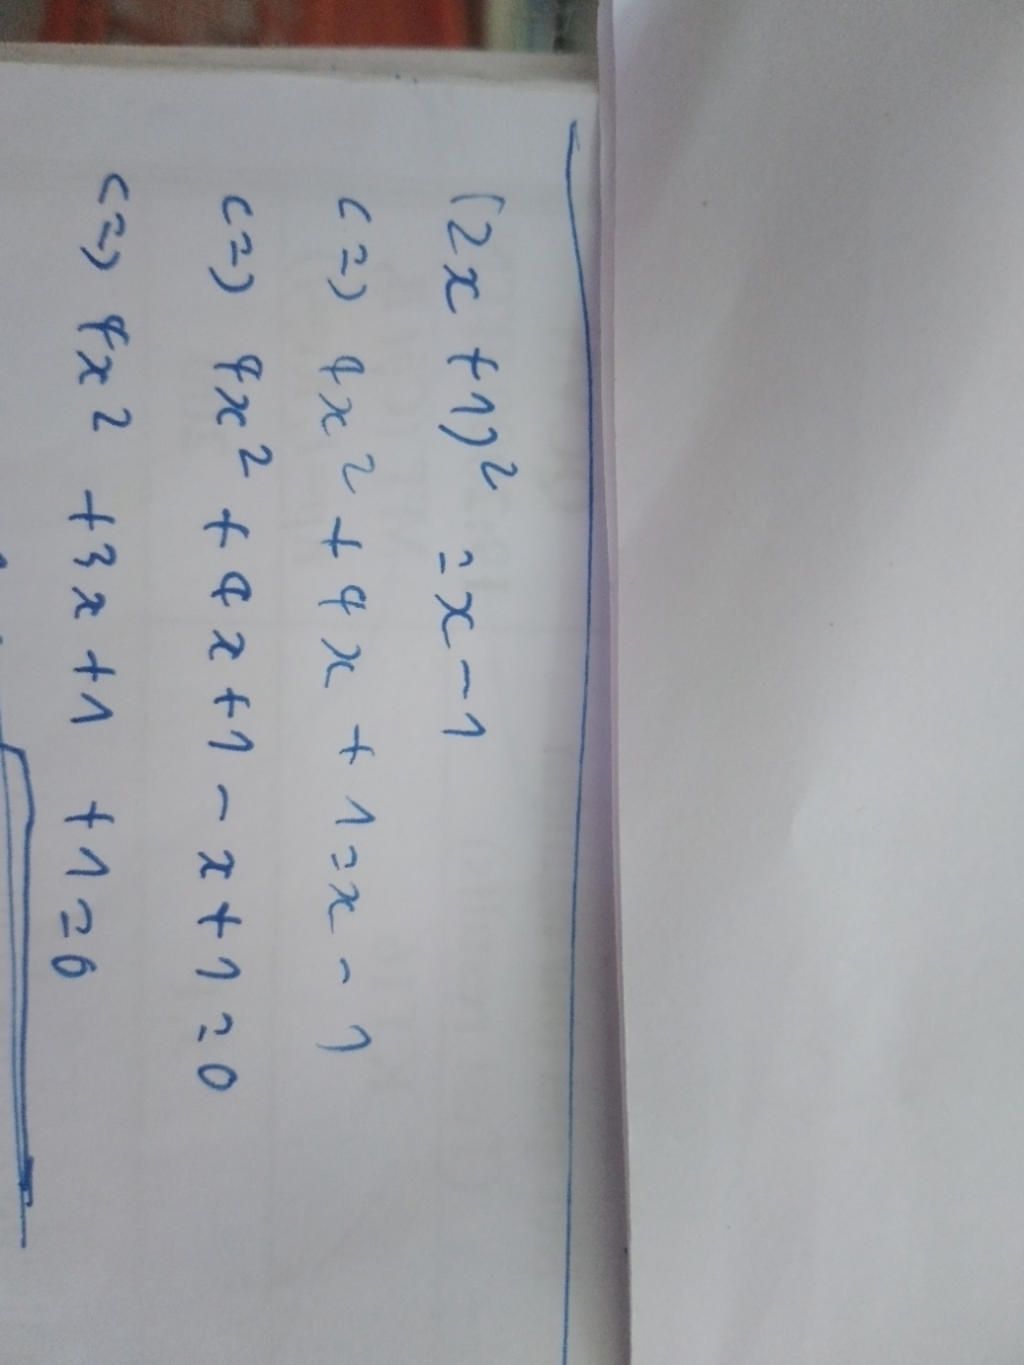 (2x + 1)² = x - 1
<=> 4x² + 4x + 1 = x - 1
<=> 4x² + 4x + 1 - x + 1 = 0
<=> 4x² + 3x + 1 + 1 = 0